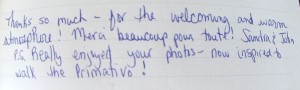 Thanks so much - for the welcoming and warm
atmosphere! Merci beaucoup pour toute! Sandra & John
P.S. Really enjoyed your photos - now inspired to
walk the Primativo!